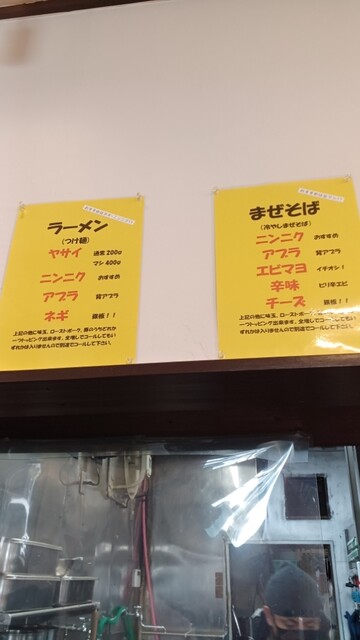 ラーメン
(つけ麺)
ヤサイ 通常 200g
マシ 400g
ニンニク おすすめ
アブラ 背アブラ
ネギ 鉄板！！
上記の他に味玉、ローストポーク、豚のうちどれか
一つトッピング出来ます。全増しでコールしてもい
ずれかは入りませんので別途でコールして下さい。
まぜそば
(冷やしまぜそば)
ニンニク おすすめ
アブラ 背アブラ
エビマヨ イチオシ！
辛味 ピリ辛エビ
チーズ 鉄板！！
上記の他に味玉、ローストポーク、
一つトッピング出来ます。全増しでコールしてもい
ずれかは入りませんので別途でコールして下さい。